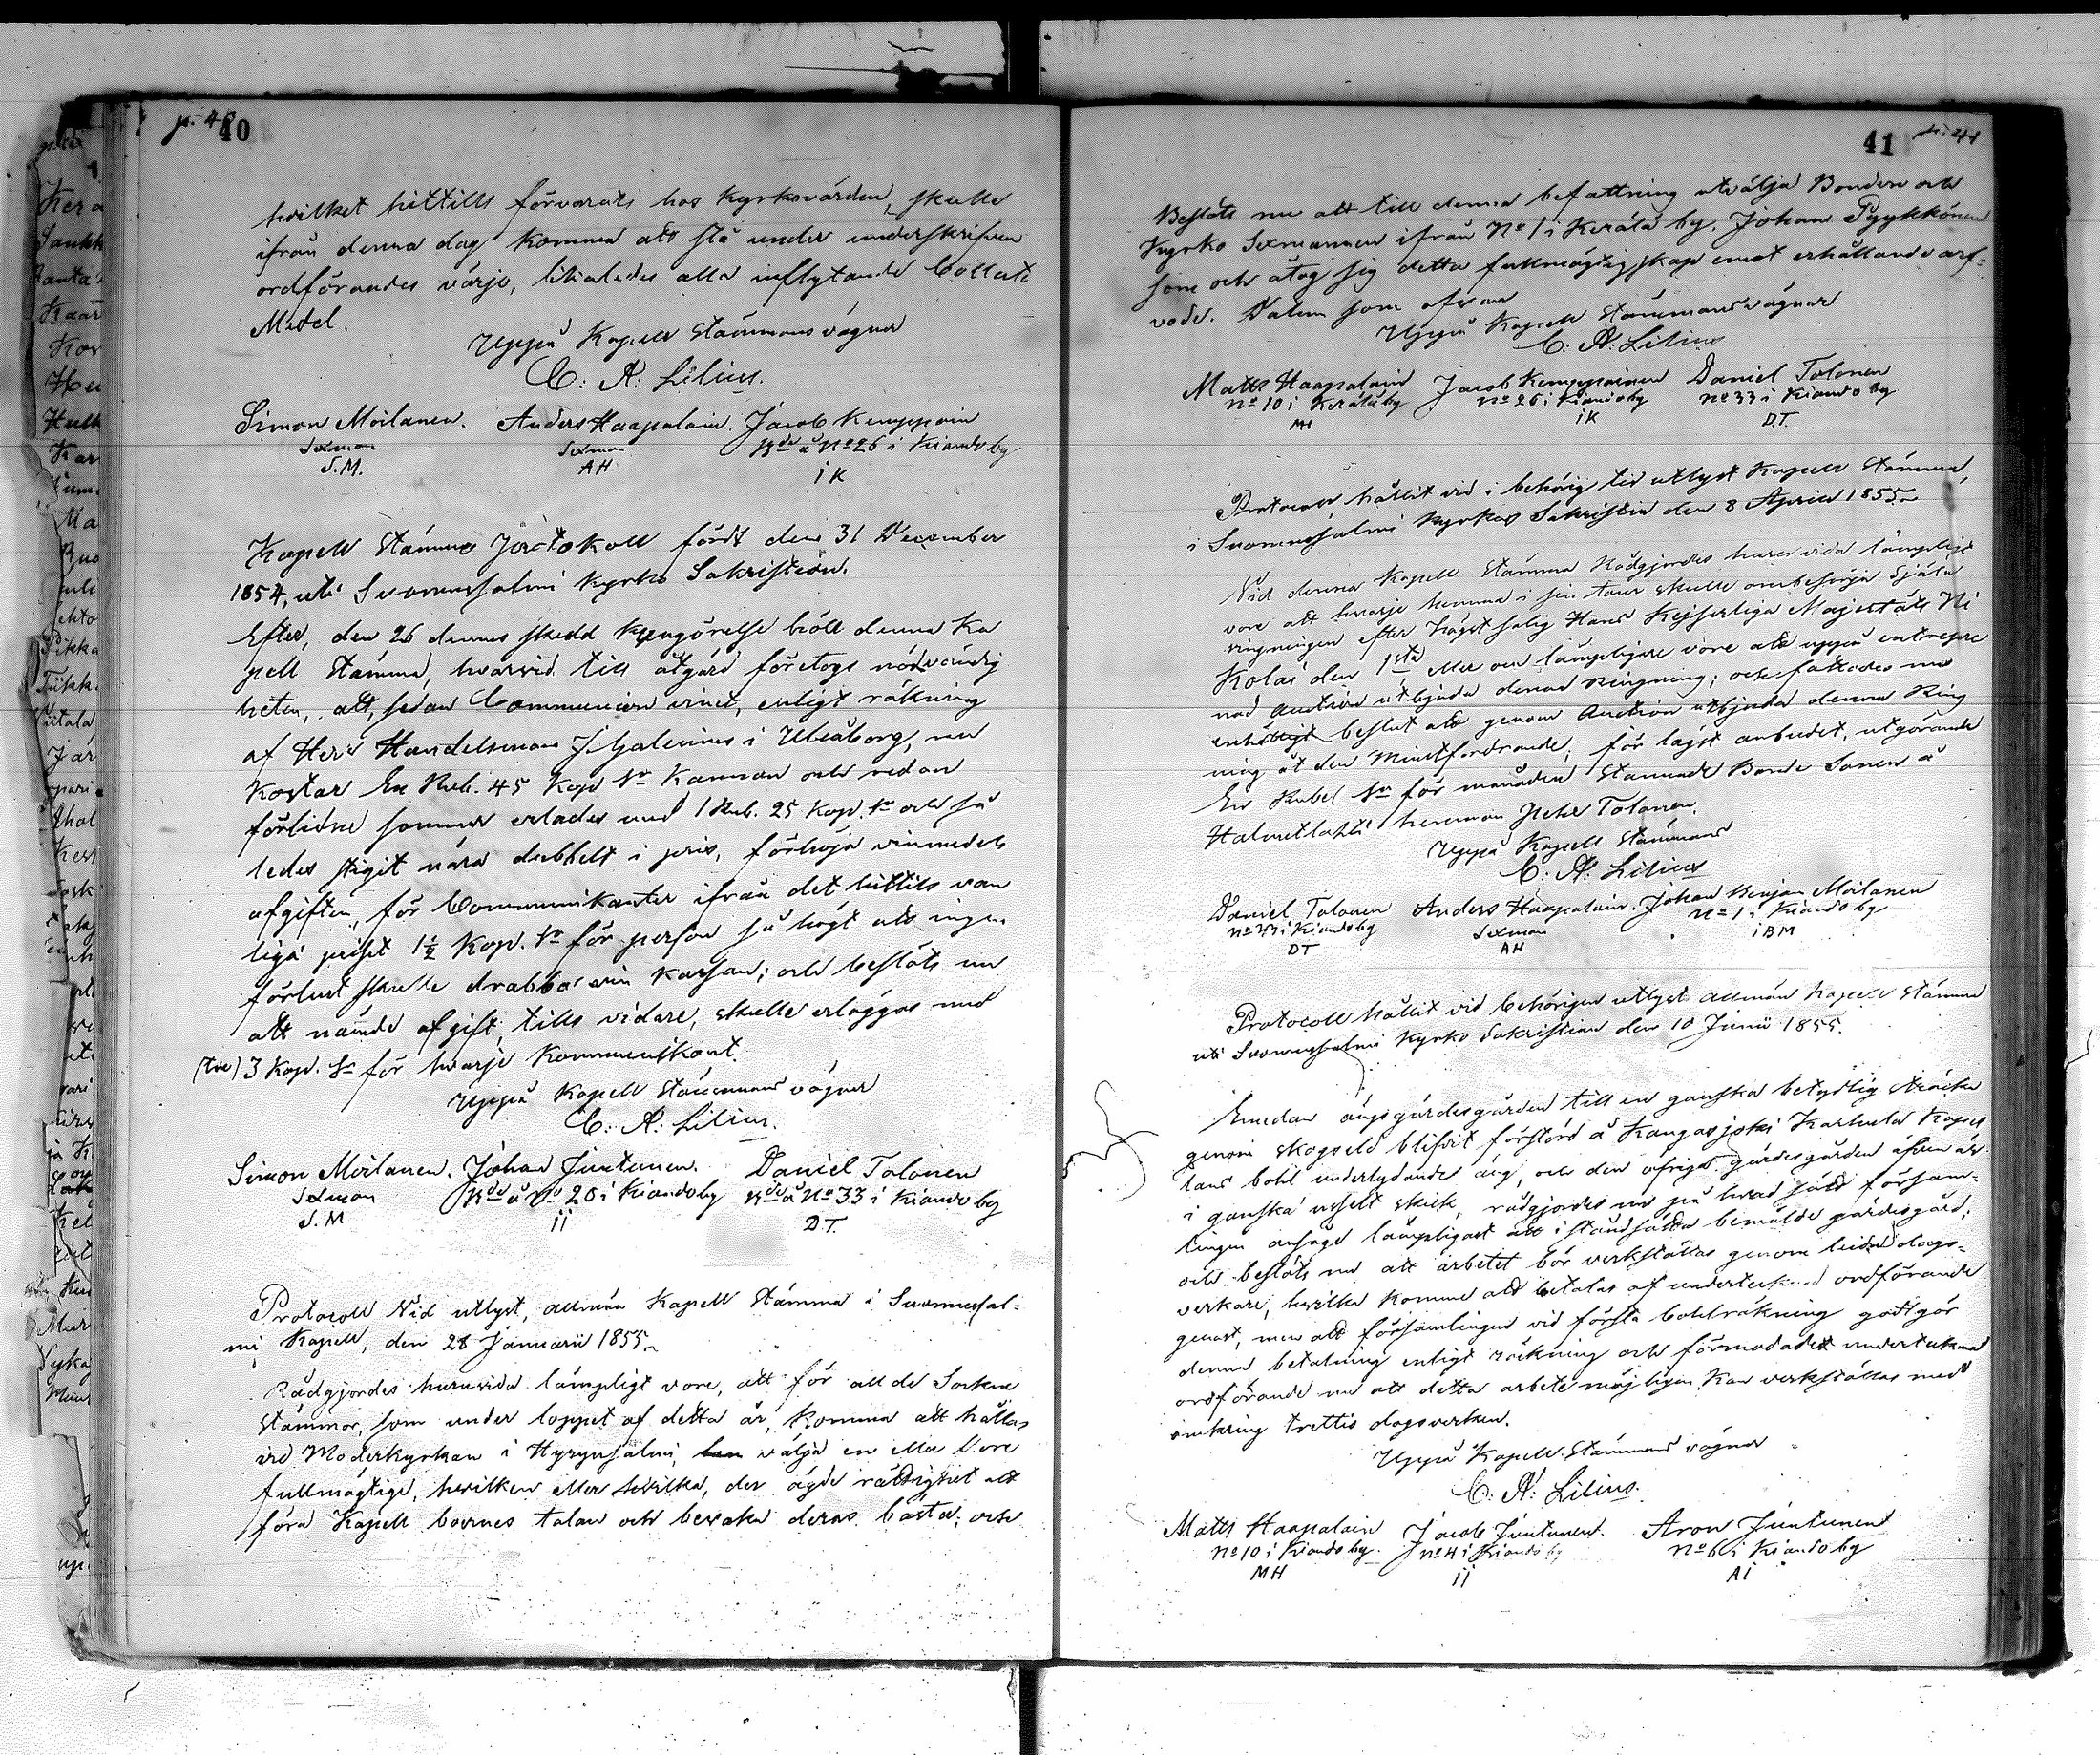 p. 40
40
hvilket hittills förvarats hos Kyrkovärden, skulle
ifrån denna dag komma att stå under underskrifven
ordförandes värjo, likaledes alla inflytande Collect
Medel.
Uppå Kapell Stämmans vägnar
C: A: Lilius.
Simon Moilanen. Anders Haapalain. Jacob Kemppain
Sexman Sexman Bde å No 26 i Kiando by
S.M. AH iK
Kapell Stämmo Protokoll fördt den 31 December
1854, uti Suomussalmi Kyrko Sakristian.
Efter, den 26 dennes skedd kungörelse höll denna Ka
pell Stämma, hvarvid till åtgärd företogs nödvändig
heten, att, sedan Communion vinet, enligt räkning
af Herr Handelsman J. Galenius i Uleåborg, nu
kostar En Rub. 45 Kop Sr Kannan och redan
förlidne sommar erlades med 1 Rub. 25 Kop. Sr och så
ledes stigit nära dubbelt i pris, förhöja vinmedels
afgiften, för Communikanter ifrån det hittils van
liga priset 1½ Kop. Sr för person så högt att ingen
förlust skulle drabba vin kassan; och beslöts nu
att nämde afgift, tills vidare, skulle erläggas med
(tre) 3 Kop. Sr för hvarje Kommunikant.
Uppå Kapell Stämmans vägnar
C: A: Lilius.
Simon Moilanen. Johan Juntunen. Daniel Tolonen
Sexman Bde å No 20 i Kiando by Bde å No 33 i Kiando by
S.M ii D.T.
Protocoll Vid utlyst, allmän Kapell Stämma i Suomussal-
mi Kapell, den 28 Januarii 1855.
Rådgjordes huruvida lämpligt vore, att för all de Sockne
Stämmor, som under loppet af detta år, komma att hållas
vid Moderkyrkan i Hyrynsalmi, välja en eller flere
fullmägtige, hvilken eller hvilka, der ägde rättighet att
föra Kapell boernes talan och bevaka deras bästa; och
41
p. 41
Beslöts nu att till denna befattning utvälja Bonden och
Kyrko Sexmannen ifrån No 1 i Kerälä by, Johan Pyykkönen
som och åtog sig detta fullmägtigskap emot erhållande arf-
vode. Datum som ofvan
Uppå Kapell Stämmans vägnar
C: A: Lilius
Matts Haapalain Jacob Kemppainen Daniel Tolonen
No 10 i Kerälä by No 26 i Kiando by No 33 i Kiando by
MH iK D.T.
Protocoll hållit vid i behörig tid utlyst Kapell Stämma,
i Suomussalmi Kyrkas Sakristia den 8 April 1855.
Vid denna Kapell Stämma Rådgjordes huruvida lämpligt
vore att hvarje hemma i sin tour skulle ombesörja Själa
ringningen efter högst salig Hans Kejserliga Majestät Ni
kolai den 1sta eller om lämpligare vore att uppå entrepre
nad auction utbjuda denna Ringning; och fattades nu
enhälligt beslut att genom Auction utbjuda denna Ring
ning åt den Mindstfordrande; för lägst anbudet, utgörande
En Rubel Sr för månaden Stannade Bonde Sonen å
Halmetlahti hemman Petter Tolonen.
Uppå Kapell Stämmans
C: A: Lilius
Daniel Tolonen Anders Haapalain. Johan Benjam Moilanen
No 33 i Kiando by Sexman No 1 i Kiando by
DT AH iBM
Protocoll hållit vid behörigen utlyst allmän Kapell Stämma
uti Suomussalmi Kyrko Sakristian den 10 Junii 1855.
Emedan ängsgärdesgården till en ganska betydlig sträcka
genom skogseld blifvit förstörd å Kangasjoki Karhula Kapel
lans bohl underlydande äng, och den öfriga gärdesgården äfven är
i ganska usselt skick, rådgjordes nu på hvad sätt försam-
lingen ansåge lämpligast att i ståndsätta bemälde gärdesgård;
och beslöts nu att arbetet bör verkställas genom leide dags-
verkare, hvilka komma att betalas af undertecknad ordförande
genast, men att församlingen vid första bohlräkning godtgör
denna betalning enligt räkning och förmodade undertecknad
ordförande nu att detta arbete möjligen kan verkställas med
omkring trettio dagsverken.
Uppå Kapell Stämmans vägnar
C: A: Lilius.
Matts Haapalain Jacob Juntunen. Aron Juntunen
No 10 i Kiando by. No 4 i Kiando by No 6 i Kiando by
MH ii Ai